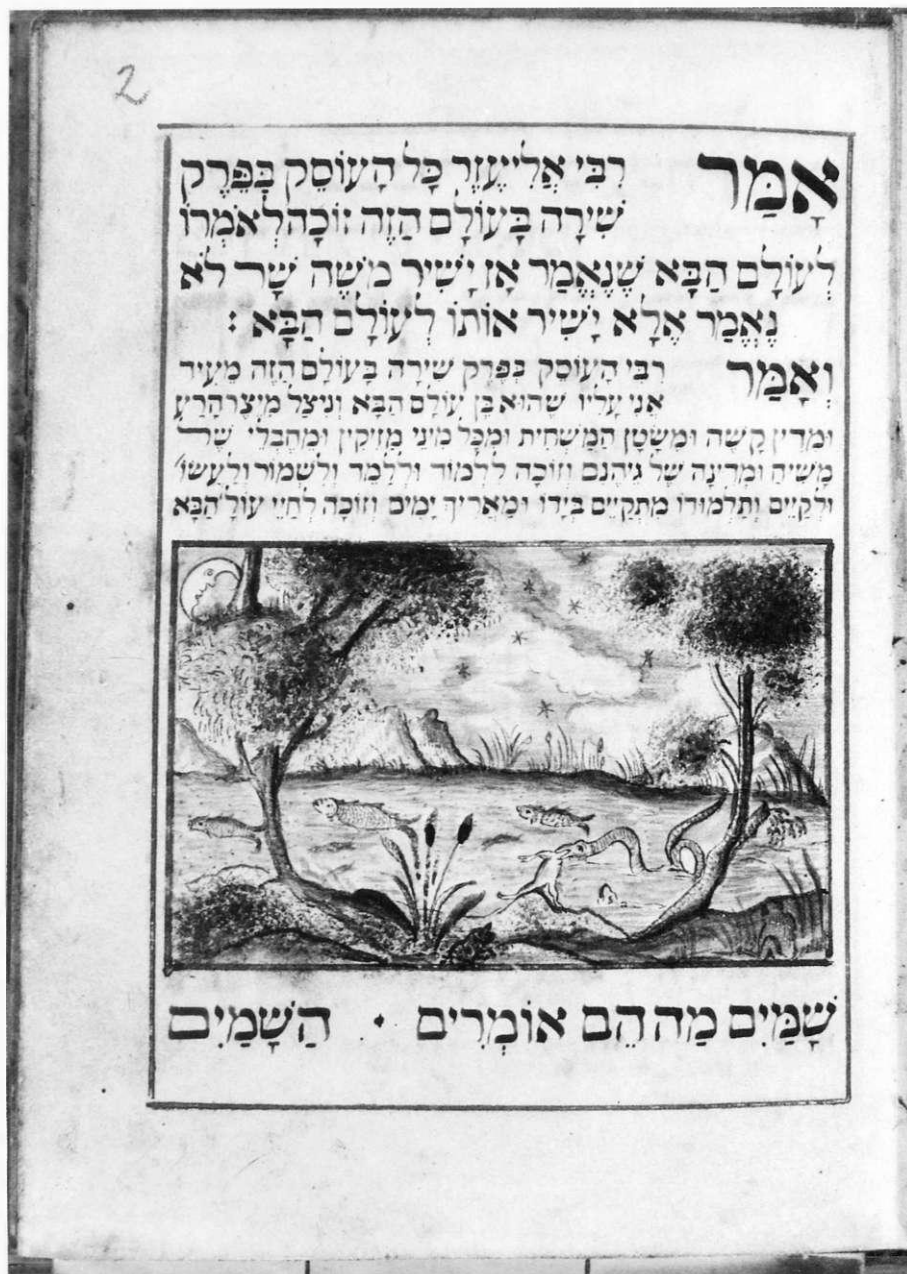 2
אָמַר רִבִּי אֱלִיעֶזֶר כָּל הָעוֹסֵק בְּפֶרֶק
שִׁירָה בָּעוֹלָם הַזֶּה זוֹכֶה לְאֹמְרוֹ
לְעוֹלָם הַבָּא שֶׁנֶּאֱמַר אָז יָשִׁיר מֹשֶׁה שָׁר לֹא
נֶאֱמַר אֶלָּא יָשִׁיר אוֹתוֹ לְעוֹלָם הַבָּא :
וְאָמַר רִבִּי הָעוֹסֵק בְּפֶרֶק שִׁירָה בָּעוֹלָם הַזֶּה מֵעִיד
אֲנִי עָלָיו שֶׁהוּא בֶּן עוֹלָם הַבָּא וְנִיצַל מִיֵּצֶר הָרַע
וּמִדִּין קָשֶׁה וּמִשָּׂטָן הַמַּשְׁחִית וּמִכָּל מִינֵי מַזִּיקִין וּמֵחֶבְלֵי שֶׁל
מָשִׁיחַ וּמִדִּינָהּ שֶׁל גֵּיהִנָּם וְזוֹכֶה לִלְמוֹד וּלְלַמֵּד וְלִשְׁמוֹר וְלַעֲשׂוֹ׳
וּלְקַיֵּים וְתַלְמוּדוֹ מִתְקַיֵּים בְּיָדוֹ וּמַאֲרִיךְ יָמִים וְזוֹכֶה לְחַיֵּי עוֹלָ׳ הַבָּא
שָׁמַיִם מַה הֵם אוֹמְרִים · הַשָּׁמַיִם